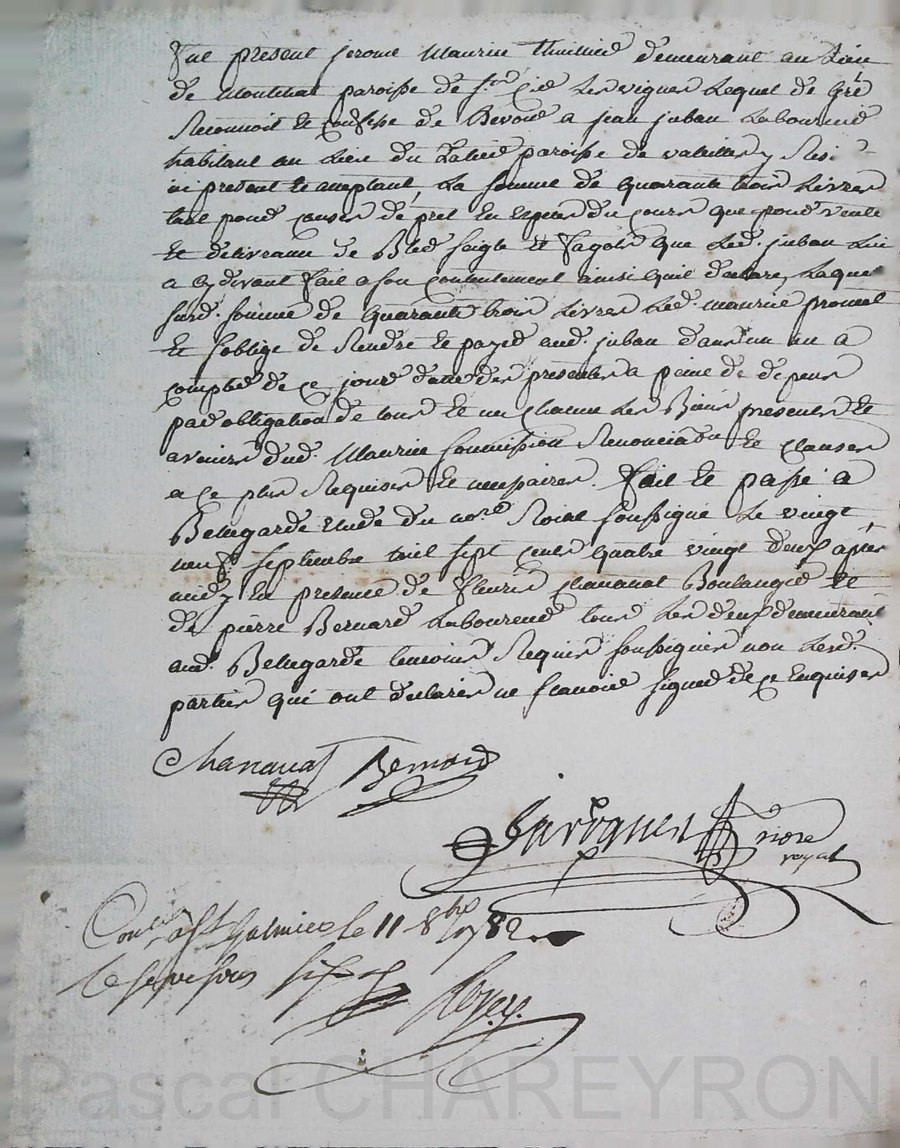 Fut présent jerome Maurin thuillier demeurant au Lieu
de Montchat paroisse de St Cir Les vignes Lequel de Gré
Reconnoit et confesse de Devoir a jean juban Laboureur
habitant au Lieu du paroisse de valeille y
ici présent et acceptant, La somme de quarante trois Livres
tant pour causes de pret En Espèces du cours que pour vente
Et delivrance de Bled seigle Et fagots que led. juban Lui
a cy devant fait a son contentement ainsi quil declare, Laquel
susd. somme de quarante trois Livres Led. maurin promet
Et s'oblige de Rendre Et payer aud. juban dans un an a
compter de ce jour datte des presentes a peine de depens
par obligation de tous Et un chacun Les Biens presents Et
avenirs dud. Maurin Soumission Renonciaon Et clauses
a ce plus Requises Et necessaires. Fait Et passé a
Bellegarde Etude du nore Roial soussigné Le vingt
neuf septembre mil sept cents quatre vingt deux après
midy En presence de fleury chananat Boulanger Et
de pierre Bernard Laboureur tous Les deux demeurant
aud. Bellegarde temoins Requis soussignés non Lesd.
parties qui ont declarées ne scavoir signer de ce Enquises
Chananat Bernard
nore
royal
Conlé a St Galmier le 11 8bre 1782
Pascal CHAREYRON